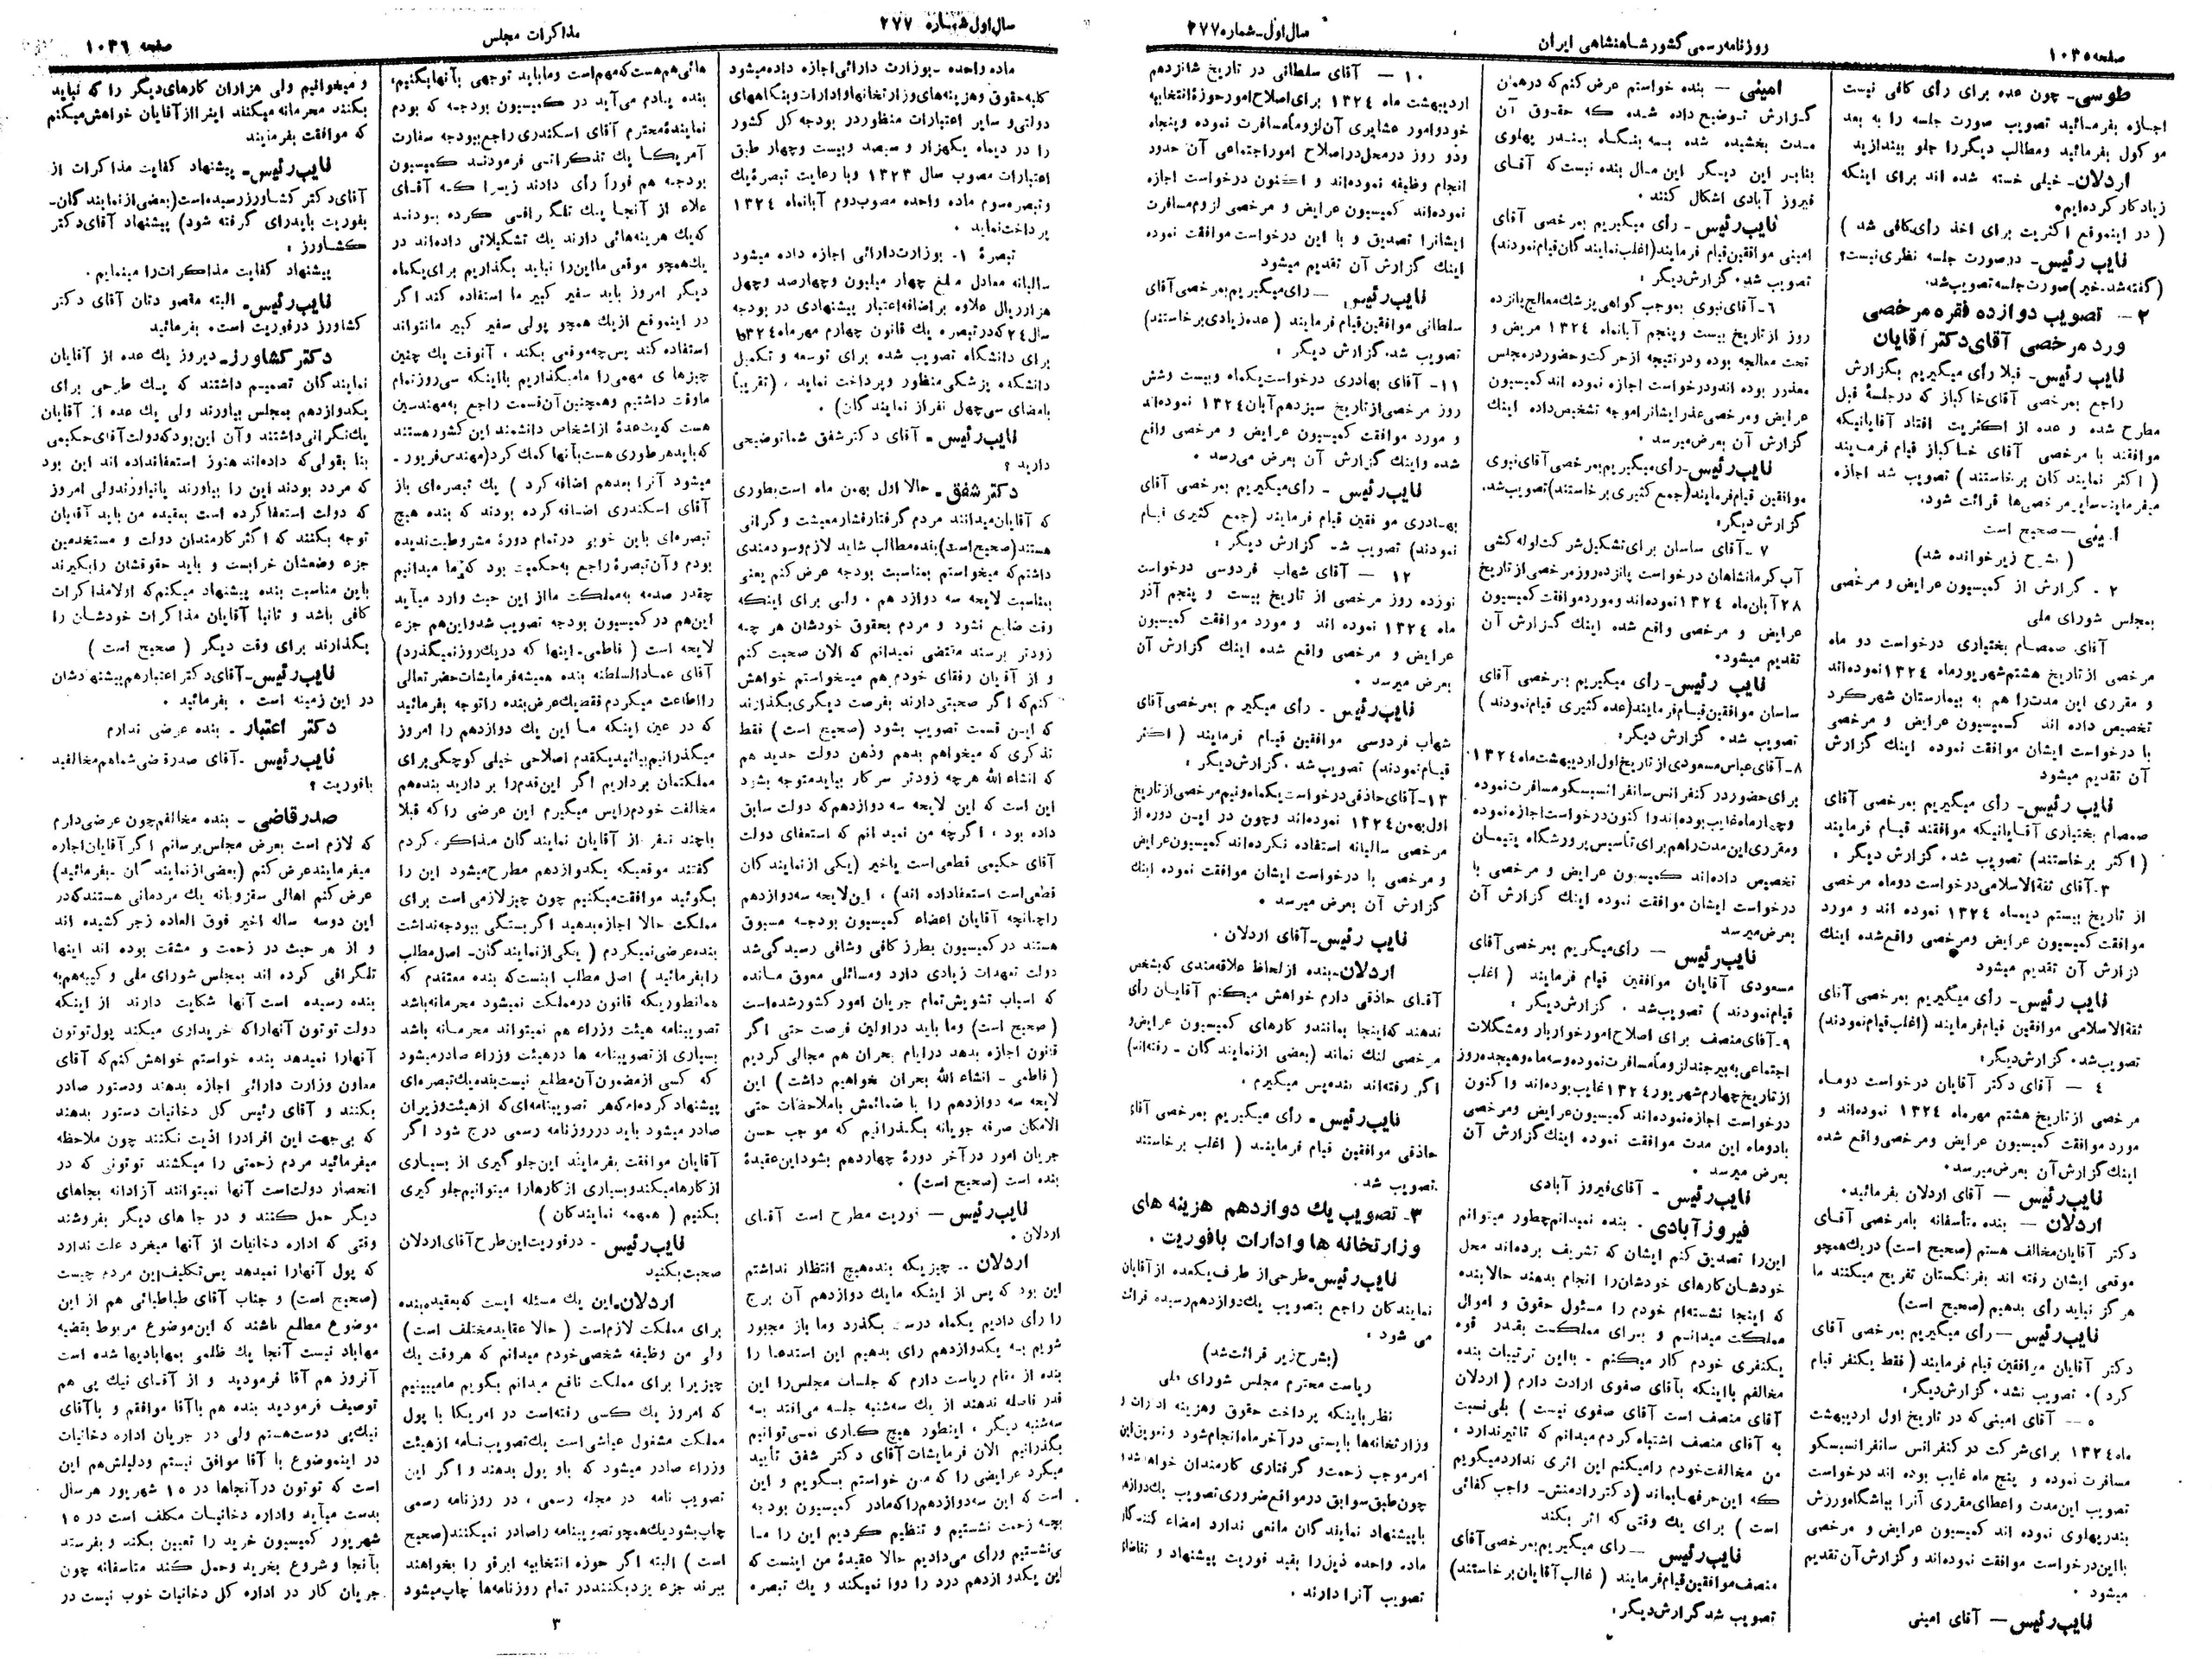 صفحه ۱۰۳۵
روزنامه رسمی کشور شاهنشاهی ایران
سال اول ـ شماره ۲۷۷
طوسی ـ چون عده برای رأی کافی نیست
اجازه بفرمائید تصویب صورت جلسه را به بعد
موکول بفرمائید ومطالب دیگر را جلو بیندازید
اردلان ـ خیلی خسته شده اند برای اینکه
زیاد کار کرده‌ایم.
( در اینموقع اکثریت برای اخذ رأی کافی شد )
نایب رئیس ـ در صورت جلسه نظری نیست؟
(گفته شد ـ خیر) صورت جلسه تصویب شد.
۲ ـ تصویب دوازده فقره مرخصی
ورد مرخصی آقای دکتر آقایان
نایب رئیس ـ قبلا رأی میگیریم بگزارش
راجع بمرخصی آقای خاکباز که در جلسهٔ قبل
مطرح شده و عده از اکثریت افتاد آقایانیکه
موافقند با مرخصی آقای خاکباز قیام فرمایند
( اکثر نمایندگان برخاستند ) تصویب شد اجازه
میفرمایند سایر مرخصی‌ها قرائت شود.
امینی ـ صحیح است
( بشرح زیر خوانده شد )
۲ . گزارش از کمیسیون عرایض و مرخصی
بمجلس شورای ملی
آقای صمصام بختیاری درخواست دو ماه
مرخصی از تاریخ هشتم شهریورماه ۱۳۲۴ نموده‌اند
و مقرری این مدت را هم به بیمارستان شهرکرد
تخصیص داده اند کمیسیون عرایض و مرخصی
با درخواست ایشان موافقت نموده اینك گزارش
آن تقدیم میشود
نایب رئیس ـ رأی میگیریم بمرخصی آقای
صمصام بختیاری آقایانیکه موافقند قیام فرمایند
( اکثر برخاستند) تصویب شد. گزارش دیگر :
۳ـ آقای ثقةالاسلامی درخواست دوماه مرخصی
از تاریخ بیستم دیماه ۱۳۲۴ نموده اند و مورد
موافقت کمیسیون عرایض ومرخصی واقع شده اینك
گزارش آن تقدیم میشود
نایب رئیس ـ رأی میگیریم بمرخصی آقای
ثقةالاسلامی موافقین قیام فرمایند (اغلب قیام نمودند)
تصویب شد. گزارش دیگر:
٤ ـ آقای دکتر آقایان درخواست دوماه
مرخصی از تاریخ هشتم مهرماه ۱۳۲۴ نموده‌اند و
مورد موافقت کمیسیون عرایض ومرخصی واقع شده
اینك گزارش آن بعرض میرسد.
نایب رئیس ـ آقای اردلان بفرمائید.
اردلان ـ بنده متأسفانه بامرخصی آقای
دکتر آقایان مخالف هستم (صحیح است) در یك همچو
موقعی ایشان رفته اند بفرنگستان تفریح میکنند ما
هرگز نباید رأی بدهیم (صحیح است)
نایب رئیس ـ رأی میگیریم بمرخصی آقای
دکتر آقایان موافقین قیام فرمایند ( فقط یکنفر قیام
کرد ). تصویب نشد. گزارش دیگر:
۵ ـ آقای امینی که در تاریخ اول اردیبهشت
ماه ۱۳۲۴ برای شرکت در کنفرانس سانفرانسیسکو
مسافرت نموده و پنج ماه غایب بوده اند درخواست
تصویب این مدت واعطای مقرری آنرا بباشگاه ورزش
بندرپهلوی نموده اند کمیسیون عرایض و مرخصی
بااین درخواست موافقت نموده‌اند و گزارش آن تقدیم
میشود .
نایب رئیس ـ آقای امینی
امینی ـ بنده خواستم عرض کنم که در همان
گزارش توضیح داده شده که حقوق آن
مدت بخشیده شده به بنگاه بندر پهلوی
بنابر این دیگر این مال بنده نیست که آقای
فیروز آبادی اشکال کنند .
نایب رئیس ـ رأی میگیریم بمرخصی آقای
امینی موافقین قیام فرمایند (اغلب نمایندگان قیام نمودند)
تصویب شد . گزارش دیگر :
۶ ـ آقای نبوی بموجب گواهی پزشك معالج پانزده
روز از تاریخ بیست وپنجم آبانماه ۱۳۲۴ مریض و
تحت معالجه بوده ودرنتیجه از حرکت وحضور در مجلس
معذور بوده اند ودرخواست اجازه نموده اند کمیسیون
عرایض ومرخصی عذر ایشان را موجه تشخیص داده اینك
گزارش آن بعرض میرسد .
نایب رئیس ـ رأی میگیریم بمرخصی آقای نبوی
موافقین قیام فرمایند (جمع کثیری برخاستند) تصویب شد.
گزارش دیگر:
۷ ـ آقای ساسان برای تشکیل شرکت لوله کشی
آب کرمانشاهان درخواست پانزده روز مرخصی از تاریخ
۲۸ آبان ماه ۱۳۲۴ نموده‌اند و مورد موافقت کمیسیون
عرایض و مرخصی واقع شده اینك گزارش آن
تقدیم میشود.
نایب رئیس ـ رأی میگیریم بمرخصی آقای
ساسان موافقین قیام فرمایند (عده کثیری قیام نمودند )
تصویب شد . گزارش دیگر:
۸ ـ آقای عباس مسعودی از تاریخ اول اردیبهشت ماه ۱۳۲۴
برای حضور در کنفرانس سانفرانسیسکو مسافرت نموده
وچهار ماه غایب بوده اند واکنون درخواست اجازه نموده
ومقرری این مدت را هم برای تأسیس پرورشگاه یتیمان
تخصیص داده‌اند کمیسیون عرایض و مرخصی با
درخواست ایشان موافقت نموده اینك گزارش آن
بعرض میرسد
نایب رئیس ـ رأی میگیریم بمرخصی آقای
مسعودی آقایان موافقین قیام فرمایند ( اغلب
قیام نمودند ) تصویب شد . گزارش دیگر :
۹ ـ آقای منصف برای اصلاح امور خواربار ومشکلات
اجتماعی به بیرجند لزوماً مسافرت نموده وسه ماه وهیجده روز
از تاریخ چهارم شهریور ۱۳۲۴ غایب بوده‌اند واکنون
درخواست اجازه نموده‌اند کمیسیون عرایض ومرخصی
بادوماه این مدت موافقت نموده اینك گزارش آن
بعرض میرسد .
نایب رئیس ـ آقای فیروز آبادی
فیروز آبادی ـ بنده نمیدانم چطور میتوانم
این را تصدیق کنم ایشان که تشریف برده‌اند محل
خودشان کارهای خودشان را انجام بدهند حالا بنده
که اینجا نشسته‌ام خودم را مسئول حقوق و اموال
مملکت میدانم و برای مملکت بقدر قوه
یکنفری خودم کار میکنم ـ بااین ترتیبات بنده
مخالفم بااینکه بآقای صفوی ارادت دارم ( اردلان
آقای منصف است آقای صفوی نیست ) بلی نسبت
به آقای منصف اشتباه کردم میدانم که تاثیر ندارد .
من مخالفت خودم را میکنم این اثری ندارد میگویم
که این حرفها بماند (دکتر رادمنش ـ واجب کفائی
است ) برای یك وقتی که اثر بکند
نایب رئیس ـ رأی میگیریم بمرخصی آقای
منصف موافقین قیام فرمایند ( غالب آقایان برخاستند)
تصویب شد گزارش دیگر:
۱۰ ـ آقای سلطانی در تاریخ شانزدهم
اردیبهشت ماه ۱۳۲۴ برای اصلاح امور حوزهٔ انتخابیه
خود وامور عشایری آن لزوماً مسافرت نموده و پنجاه
ودو روز در محل در اصلاح امور اجتماعی آن حدود
انجام وظیفه نموده‌اند و اکنون درخواست اجازه
نموده‌اند کمیسیون عرایض و مرخصی لزوم مسافرت
ایشانرا تصدیق و با این درخواست موافقت نموده
اینك گزارش آن تقدیم میشود
نایب رئیس ـ رأی میگیریم بمرخصی آقای
سلطانی موافقین قیام فرمایند ( عده زیادی برخاستند)
تصویب شد. گزارش دیگر :
۱۱ ـ آقای بهادری درخواست یکماه وبیست وشش
روز مرخصی از تاریخ سیزدهم آبان ۱۳۲۴ نموده‌اند
و مورد موافقت کمیسیون عرایض و مرخصی واقع
شده واینك گزارش آن بعرض می‌رسد .
نایب رئیس ـ رأی میگیریم بمرخصی آقای
بهادری موافقین قیام فرمایند (جمع کثیری قیام
نمودند) تصویب شد. گزارش دیگر :
۱۲ ـ آقای شهاب فردوسی درخواست
نوزده روز مرخصی از تاریخ بیست و پنجم آذر
ماه ۱۳۲۴ نموده اند و مورد موافقت کمیسیون
عرایض و مرخصی واقع شده اینك گزارش آن
بعرض میرسد .
نایب رئیس ـ رأی میگیریم بمرخصی آقای
شهاب فردوسی موافقین قیام فرمایند ( اکثر
قیام نمودند) تصویب شد . گزارش دیگر :
۱۳ ـ آقای حاذقی درخواست یکماه ونیم مرخصی از تاریخ
اول بهمن ۱۳۲۴ نموده‌اند وچون در این دوره از
مرخصی سالیانه استفاده نکرده‌اند کمیسیون عرایض
و مرخصی با درخواست ایشان موافقت نموده اینك
گزارش آن بعرض میرسد .
نایب رئیس ـ آقای اردلان .
اردلان ـ بنده از لحاظ علاقه‌مندی که بشخص
آقای حاذقی دارم خواهش میکنم آقایان رأی
ندهند که اینجا بمانند و کارهای کمیسیون عرایض و
مرخصی لنك نماند (بعضی از نمایندگان ـ رفته‌اند)
اگر رفته‌اند بنده پس میگیرم .
نایب رئیس ـ رأی میگیریم بمرخصی آقای
حاذقی موافقین قیام فرمایند ( اغلب برخاستند
تصویب شد .
۳ ـ تصویب یك دوازدهم هزینه های
وزارتخانه ها و ادارات بافوریت .
نایب رئیس ـ طرحی از طرف یکعده از آقایان
نمایندگان راجع بتصویب یك دوازدهم رسیده قرائت
می شود .
(بشرح زیر قرائت شد)
ریاست محترم مجلس شورای ملی
نظر باینکه پرداخت حقوق وهزینه ادارات و
وزارتخانه‌ها بایستی در آخر ماه انجام شود و تعویق این
امر موجب زحمت و گرفتاری کارمندان خواهد شد
چون طبق سوابق در مواقع ضروری تصویب یك دوازدهم
با پیشنهاد نمایندگان مانعی ندارد امضاء کنندگان
ماده واحده ذیل را بقید فوریت پیشنهاد و تقاضای
تصویب آنرا دارند .
سال اول شماره ۲۷۷
مذاکرات مجلس
صفحه ۱۰۳۶
ماده واحده ـ بوزارت دارائی اجازه داده میشود
کلیه حقوق و هزینه های وزارتخانها وادارات وبنگاههای
دولتی و سایر اعتبارات منظور در بودجه کل کشور
را در دیماه یکهزار و سیصد وبیست وچهار طبق
اعتبارات مصوب سال ۱۳۲۳ و با رعایت تبصره یك
و تبصره سوم ماده واحده مصوب دوم آبانماه ۱۳۲۴
پرداخت نماید .
تبصرهٔ ۱ ـ بوزارت دارائی اجازه داده میشود
سالیانه معادل مبلغ چهار میلیون وچهارصد وچهل
هزار ریال علاوه بر اضافه اعتبار پیشنهادی در بودجه
سال ۲۴ که در تبصره یك قانون چهارم مهر ماه ۱۳۲۴
برای دانشگاه تصویب شده برای توسعه و تکمیل
دانشکده پزشکی منظور و پرداخت نماید . (تقریباً
بامضای سی چهل نفر از نمایندگان) .
نایب رئیس ـ آقای دکتر شفق شما توضیحی
دارید ؟
دکتر شفق ـ حالا اول بهمن ماه است بطوری
که آقایان میدانند مردم گرفتار فشار معیشت و گرانی
هستند (صحیح است) بنده مطالب شاید لازم وسودمندی
داشتم که میخواستم بمناسبت بودجه عرض کنم یعنی
بمناسبت لایحه سه دوازدهم . ولی برای اینکه
وقت ضایع نشود و مردم بحقوق خودشان هر چه
زودتر برسند مقتضی نمیدانم که الان صحبت کنم
و از آقایان رفقای خودم هم میخواستم خواهش
کنم که اگر صحبتی دارند بفرصت دیگری بگذارند
که این قسمت تصویب بشود (صحیح است ) فقط
تذکری که میخواهم بدهم وذهن دولت جدید هم
که انشاءالله هرچه زودتر سر کار بیاید متوجه بشود
این است که این لایحه سه دوازدهم که دولت سابق
داده بود ، اگرچه من نمیدانم که استعفای دولت
آقای حکیمی قطعی است یاخیر (یکی از نمایندگان
قطعی است استعفا داده اند) ، این لایحه سه دوازدهم
را چنانچه آقایان اعضاء کمیسیون بودجه مسبوق
هستند در کمیسیون بطرز کافی وشافی رسیدگی شد
دولت تعهدات زیادی دارد ومسائلی معوق مانده
که اسباب تشویش تمام جریان امور کشور شده است
(صحیح است) وما باید در اولین فرصت حتی اگر
قانون اجازه بدهد در ایام بحران هم مجالی کردیم
( فاطمی ـ انشاء الله بحران نخواهیم داشت ) این
لایحه سه دوازدهم را با ضمائمش باملاحظات حتی
الامکان صرفه جویانه بگذرانیم که موجب حسن
جریان امور در آخر دورهٔ چهاردهم بشود این عقیدهٔ
بنده است (صحیح است) .
نایب رئیس ـ فوریت مطرح است آقای
اردلان .
اردلان ـ چیزیکه بنده هیچ انتظار نداشتم
این بود که پس از اینکه ما یك دوازدهم آن برج
را رأی دادیم یکماه درست بگذرد وما باز مجبور
شویم به یکدوازدهم رای بدهیم این استدعا را
بنده از مقام ریاست دارم که جلسات مجلس را این
قدر فاصله ندهند از یك سه‌شنبه جلسه می‌افتد به
سه‌شنبه دیگر ، اینطور هیچ کاری نمی‌توانیم
بگذرانیم الان فرمایشات آقای دکتر شفق تأیید
میکرد عرایضی را که من خواستم بگویم و این
است که این سه دوازدهم را که مادر کمیسیون بودجه
بچه زحمت نشستیم و تنظیم کردیم این را ما
می‌نشستیم ورای می‌دادیم حالا عقیدهٔ من اینست که
این یکدوازدهم درد را دوا نمیکند و یك تبصره
هائی هم هست که مهم است وما باید توجهی بآنها بکنیم،
بنده یادم می‌آید در کمیسیون بودجه که بودم
نمایندهٔ محترم آقای اسکندری راجع ببودجه سفارت
آمریکا یك تذکراتی فرمودند کمیسیون
بودجه هم فوراً رأی دادند زیرا که آقای
علاء از آنجا یك تلگرافی کرده بودند
که یك هزینه‌هائی دارند یك تشکیلاتی داده‌اند در
یك همچو موقعی ما این را نباید بگذاریم برای یکماه
دیگر امروز باید سفیر کبیر ما استفاده کند اگر
در اینموقع از یك همچو پولی سفیر کبیر ما نتواند
استفاده کند پس چه موقعی بکند ، آنوقت یك چنین
چیزهای مهمی را ما میگذاریم بااینکه سی روز تمام
ما وقت داشتیم وهمچنین آن قسمت راجع به مهندسین
هست که یك عدهٔ از اشخاص دانشمند این کشور هستند
که باید هر طوری هست بآنها کمك کرد (مهندس فریور ـ
میشود آنرا بعد هم اضافه کرد ) یك تبصره‌ای باز
آقای اسکندری اضافه کرده بودند که بنده هیچ
تبصره‌ای باین خوبی در تمام دورهٔ مشروطیت ندیده
بودم وآن تبصرهٔ راجع به حکمیت بود که ما میدانیم
چقدر صدمه به مملکت ما از این حیث وارد میآید
این هم در کمیسیون بودجه تصویب شد و این هم جزء
لایحه است ( فاطمی ـ اینها که در یك روز نمیگذرد)
آقای عمادالسلطنه بنده همیشه فرمایشات حضرتعالی
را اطاعت میکردم فقط یك عرض بنده را توجه بفرمائید
که در عین اینکه ما این یك دوازدهم را امروز
میگذرانیم بیائید یکقدم اصلاحی خیلی کوچکی برای
مملکتمان برداریم اگر این قدم را بردارید بنده هم
مخالفت خودم را پس میگیرم این عرضی را که قبلا
باچند نفر از آقایان نمایندگان مذاکره کردم
گفتند موقعیکه یکدوازدهم مطرح میشود این را
بگوئید موافقت میکنیم چون چیز لازمی است برای
مملکت حالا اجازه بدهید اگر بستگی ببودجه نداشت
بنده عرضی نمیکردم ( یکی از نمایندگان ـ اصل مطلب
را بفرمائید ) اصل مطلب اینست که بنده معتقدم که
همانطوریکه قانون در مملکت نمیشود محرمانه باشد
تصویبنامه هیئت وزراء هم نمیتواند محرمانه باشد
بسیاری از تصویبنامه ها در هیئت وزراء صادر میشود
که کسی از مضمون آن مطلع نیست بنده یك تبصره‌ای
پیشنهاد کرده‌ام که هر تصویبنامه‌ای که از هیئت وزیران
صادر میشود باید در روزنامه رسمی درج شود اگر
آقایان موافقت بفرمایند این جلوگیری از بسیاری
از کارها میکند و بسیاری از کارها را میتوانیم جلوگیری
بکنیم ( همهمه نمایندگان )
نایب رئیس ـ در فوریت این طرح آقای اردلان
صحبت بکنید
اردلان ـ این یك مسئله ایست که بعقیده بنده
برای مملکت لازم است ( حالا عقاید مختلف است )
ولی من وظیفه شخصی خودم میدانم که هر وقت یك
چیزیرا برای مملکت نافع میدانم بگویم ما میبینیم
که امروز یك کسی رفته است در امریکا با پول
مملکت مشغول عیاشی است یك تصویبنامه از هیئت
وزراء صادر میشود که باو پول بدهند و اگر این
تصویب نامه در مجله رسمی ، در روزنامه رسمی
چاپ بشود یك همچو تصویبنامه را صادر نمیکنند (صحیح
است ) البته اگر حوزه انتخابیه ابرقو را بخواهند
ببرند جزء یزد بکنند در تمام روزنامه‌ها چاپ میشود
و میخوانیم ولی هزاران کارهای دیگر را که نباید
بکنند محرمانه میکنند اینرا از آقایان خواهش میکنم
که موافقت بفرمایند
نایب رئیس ـ پیشنهاد کفایت مذاکرات از
آقای دکتر کشاورز رسیده است (بعضی از نمایندگان ـ
بفوریت باید رای گرفته شود) پیشنهاد آقای دکتر
کشاورز :
پیشنهاد کفایت مذاکرات را مینمایم .
نایب رئیس ـ البته مقصودتان آقای دکتر
کشاورز در فوریت است. بفرمائید
دکتر کشاورز ـ دیروز یك عده از آقایان
نمایندگان تصمیم داشتند که یك طرحی برای
یکدوازدهم بمجلس بیاورند ولی یك عده از آقایان
یك نگرانی داشتند وآن این بود که دولت آقای حکیمی
بنا بقولی که داده‌اند هنوز استعفا نداده اند این بود
که مردد بودند این را بیاورند یا نیاورند ولی امروز
که دولت استعفا کرده است بعقیده من باید آقایان
توجه بکنند که اکثر کارمندان دولت و مستخدمین
جزء وضعشان خرابست و باید حقوقشان را بگیرند
باین مناسبت بنده پیشنهاد میکنم که اولا مذاکرات
کافی باشد و ثانیا آقایان مذاکرات خودشان را
بگذارند برای وقت دیگر ( صحیح است )
نایب رئیس ـ آقای دکتر اعتبار هم پیشنهادشان
در این زمینه است . بفرمائید .
دکتر اعتبار ـ بنده عرضی ندارم
نایب رئیس ـ آقای صدرقاضی شما هم مخالفید
بافوریت ؟
صدر قاضی ـ بنده مخالفم چون عرضی دارم
که لازم است بعرض مجلس برسانم اگر آقایان اجازه
میفرمایند عرض کنم (بعضی از نمایندگان ـ بفرمائید)
عرض کنم اهالی سقز و بانه یك مردمانی هستند که در
این دوسه ساله اخیر فوق العاده زجر کشیده اند
و از هر حیث در زحمت و مشقت بوده اند اینها
تلگرافی کرده اند بمجلس شورای ملی و کپیه هم به
بنده رسیده است آنها شکایت دارند از اینکه
دولت توتون آنها را که خریداری میکند پول توتون
آنهارا نمیدهد بنده خواستم خواهش کنم که آقای
معاون وزارت دارائی اجازه بدهند ودستور صادر
بکنند و آقای رئیس کل دخانیات دستور بدهند
که بی‌جهت این افراد را اذیت نکنند چون ملاحظه
میفرمائید مردم زحمتی را میکشند توتونی که در
انحصار دولت است آنها نمیتوانند آزادانه بجاهای
دیگر حمل کنند و در جا های دیگر بفروشند
وقتی که اداره دخانیات از آنها میخرد علت ندارد
که پول آنهارا نمیدهد پس تکلیف این مردم چیست
(صحیح است) و جناب آقای طباطبائی هم از این
موضوع مطلع باشند که این موضوع مربوط بقضیه
مهاباد نیست آنجا یك ظلمی بمهابادیها شده است
آنروز هم آقا فرمودید و از آقای نیك پی هم
توصیف فرمودید بنده هم باآقا موافقم و باآقای
نیك پی دوست هستم ولی در جریان اداره دخانیات
در اینموضوع با آقا موافق نیستم ودلیلش هم این
است که توتون در آنجاها در ۱۵ شهریور هر سال
بدست میآید واداره دخانیات مکلف است در ۱۵
شهریور کمیسیون خرید را تعیین بکند و بفرستد
بآنجا و شروع بخرید وحمل کند متاسفانه چون
جریان کار در اداره کل دخانیات خوب نیست در
۳